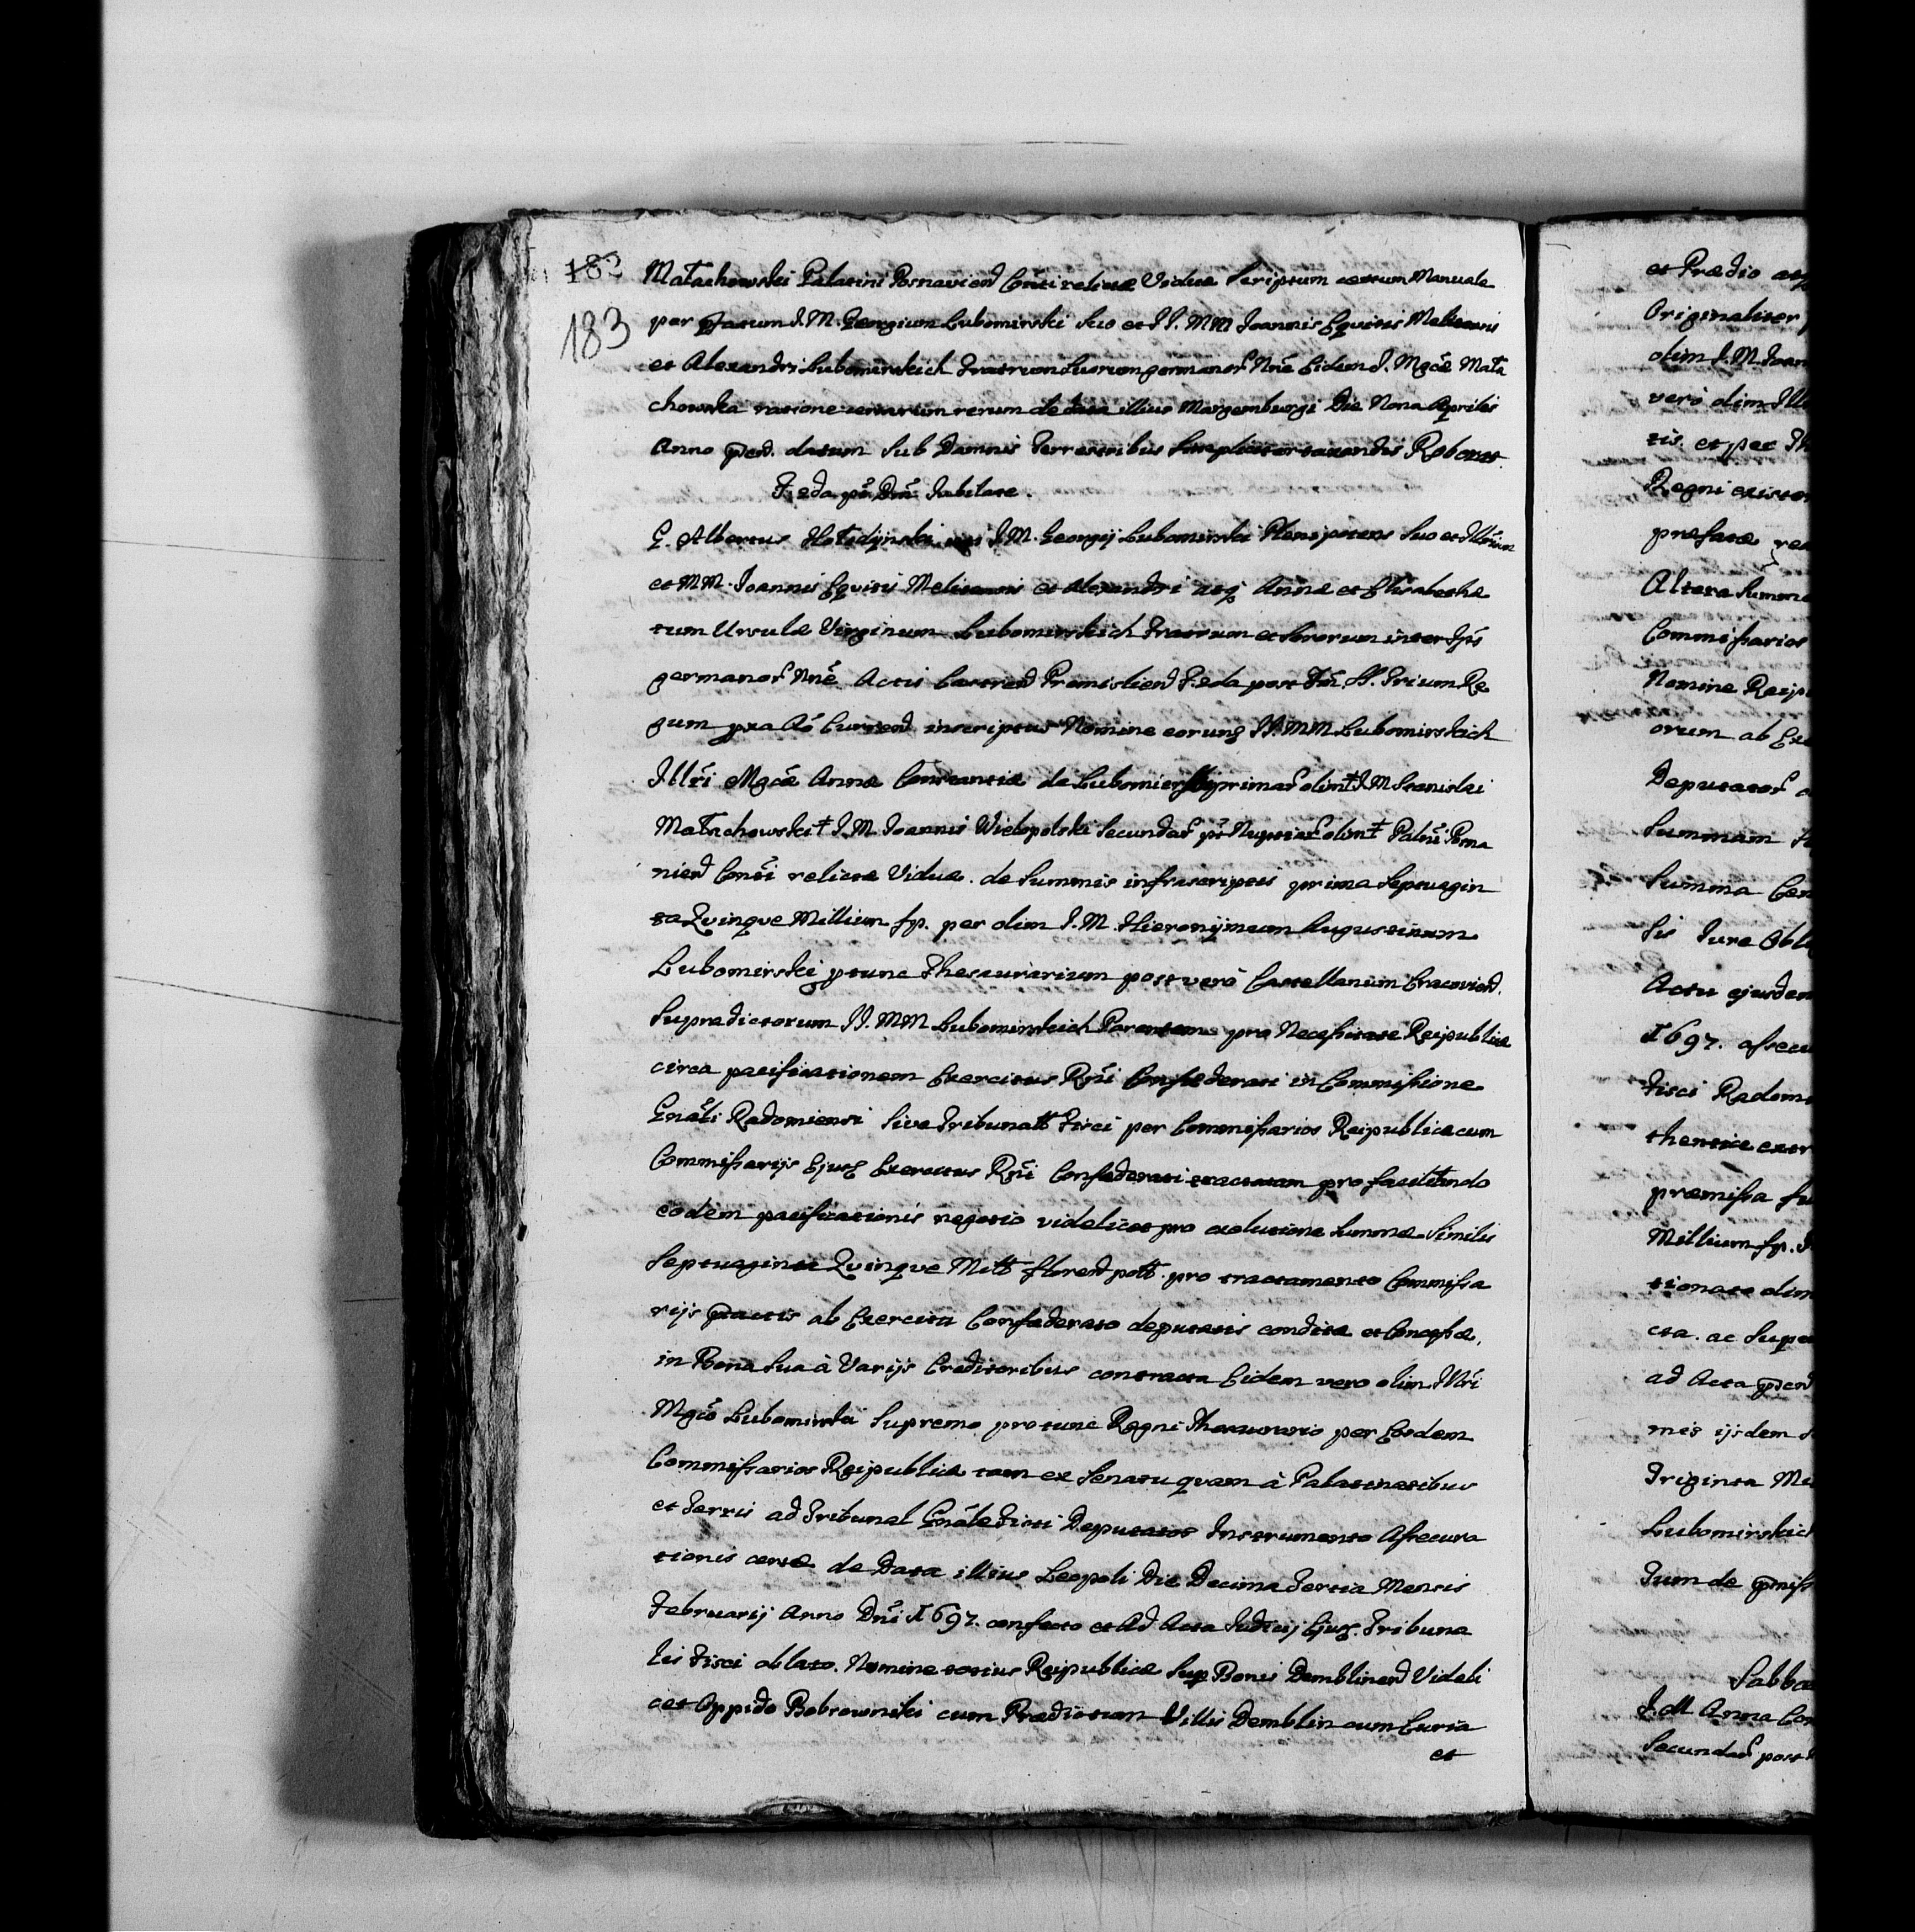 182
183
Małachowski Palatini Posnaniend Consti relictæ Viduæ Scriptum certum Manuale
per pfatum J. M. Georgium Lubomirski Suo et JJ. MM Joannis Equitis Melitensis
et Alexandri Lubomirskich Fratrum Suorum germanor Nñe Eidem J. Mgcæ Mała
chowska ratione certarum rerum de data illius Margemburgi Die Nona Aprilis
Anno pnd. datum Sub Damnis Terrestribus Simpliciter taxandis Roborat.
F. 2da pt Dñi Jubilate.
G. Albertus J. M. Georgij Lubomirski Plenipotens Suo et Illrium
et MM. Joannis Equitis Melitensis et Alexandri atq Annæ et Elisabethæ
tum Ursulæ Virginum Lubomirskich Fratrum et Sororum inter Sps
germanor Nñe Actis Castrend Premisliend F. 2da post Fm SS. Trium Re
gum pxa Aõ Currend inscriptus Nomine eorund JJ. MM Lubomirskich
Jllri Mgcæ Annæ Constantiæ de Lubomierz primar olim J. M Stanislai
Małachowski J. M. Joannis Wielopolski Secundar pt Nuptiar olim Palni Posna
niend Consti relictæ Viduæ. de Summis infrascriptis prima Septuagin
ta Qvinqve Millium fp. per olim J. M. Hieronijmum Augustinum
Lubomirski ptunc Thesaurarium post verò Castellanum Cracoviend.
Supradictorum JJ. MM Lubomirskich Parentem pro Necessitate Reipublicæ
circa pacificationem Exercitus Rñi Confæderati in Commissione
Gnali Radomiensi Sive Tribunalt Fisci per Commissarios Reipublicæ cum
Commissarijs Ejusd Exercitus Rñi Confæderati tractatam pro facilitando
eodem pacificationis negotio videlicet pro exolutione Summæ Similis
Septuaginta Qvinqve Mill florend poll. pro tractamento Commissa
rijs ptactis ab Exercitu Confæderato deputatis conditæ et Concessæ,
in Bona Sua à Varijs Creditoribus contracta Eidem vero olim Jllri
Mgco Lubomirski Supremo protunc Regni Thesaurario per Eosdem
Commissarios Reipublicæ tam ex Senatu quam à Palatinatibus
et Terris ad Tribunal Gnale Fisci Deputatos Instrumento Assecura
tionis certæ de Data illius Leopoli Die Decima Tertia Mensis
Februarij Anno Dñi 1697. confecto et Ad Acta Judicij Ejusd. Tribuna
lis Fisci oblato. Nomine totius Reipublicæ Sup Bonis Demblinend Videli
cet Oppido Bobrowniki cum Prædio tum Villis Demblin cum Curia
et
et Prædio
Originaliter
olim J. M.
verò olim
tis. et per
Regni
prefatæ
Altera Summa
Commissarios
Nomine Reip
orum ab
Deputator
Summam
Summa
sis Jure
Actu ejusdem
1697.
Fisci Radom
præmissa
Millium fp.
tionato olim
cta. ac
ad Acta pnd
mis ijsdem
Triginta
Lubomirskich
Tum de
J. M Anna
Secundar post